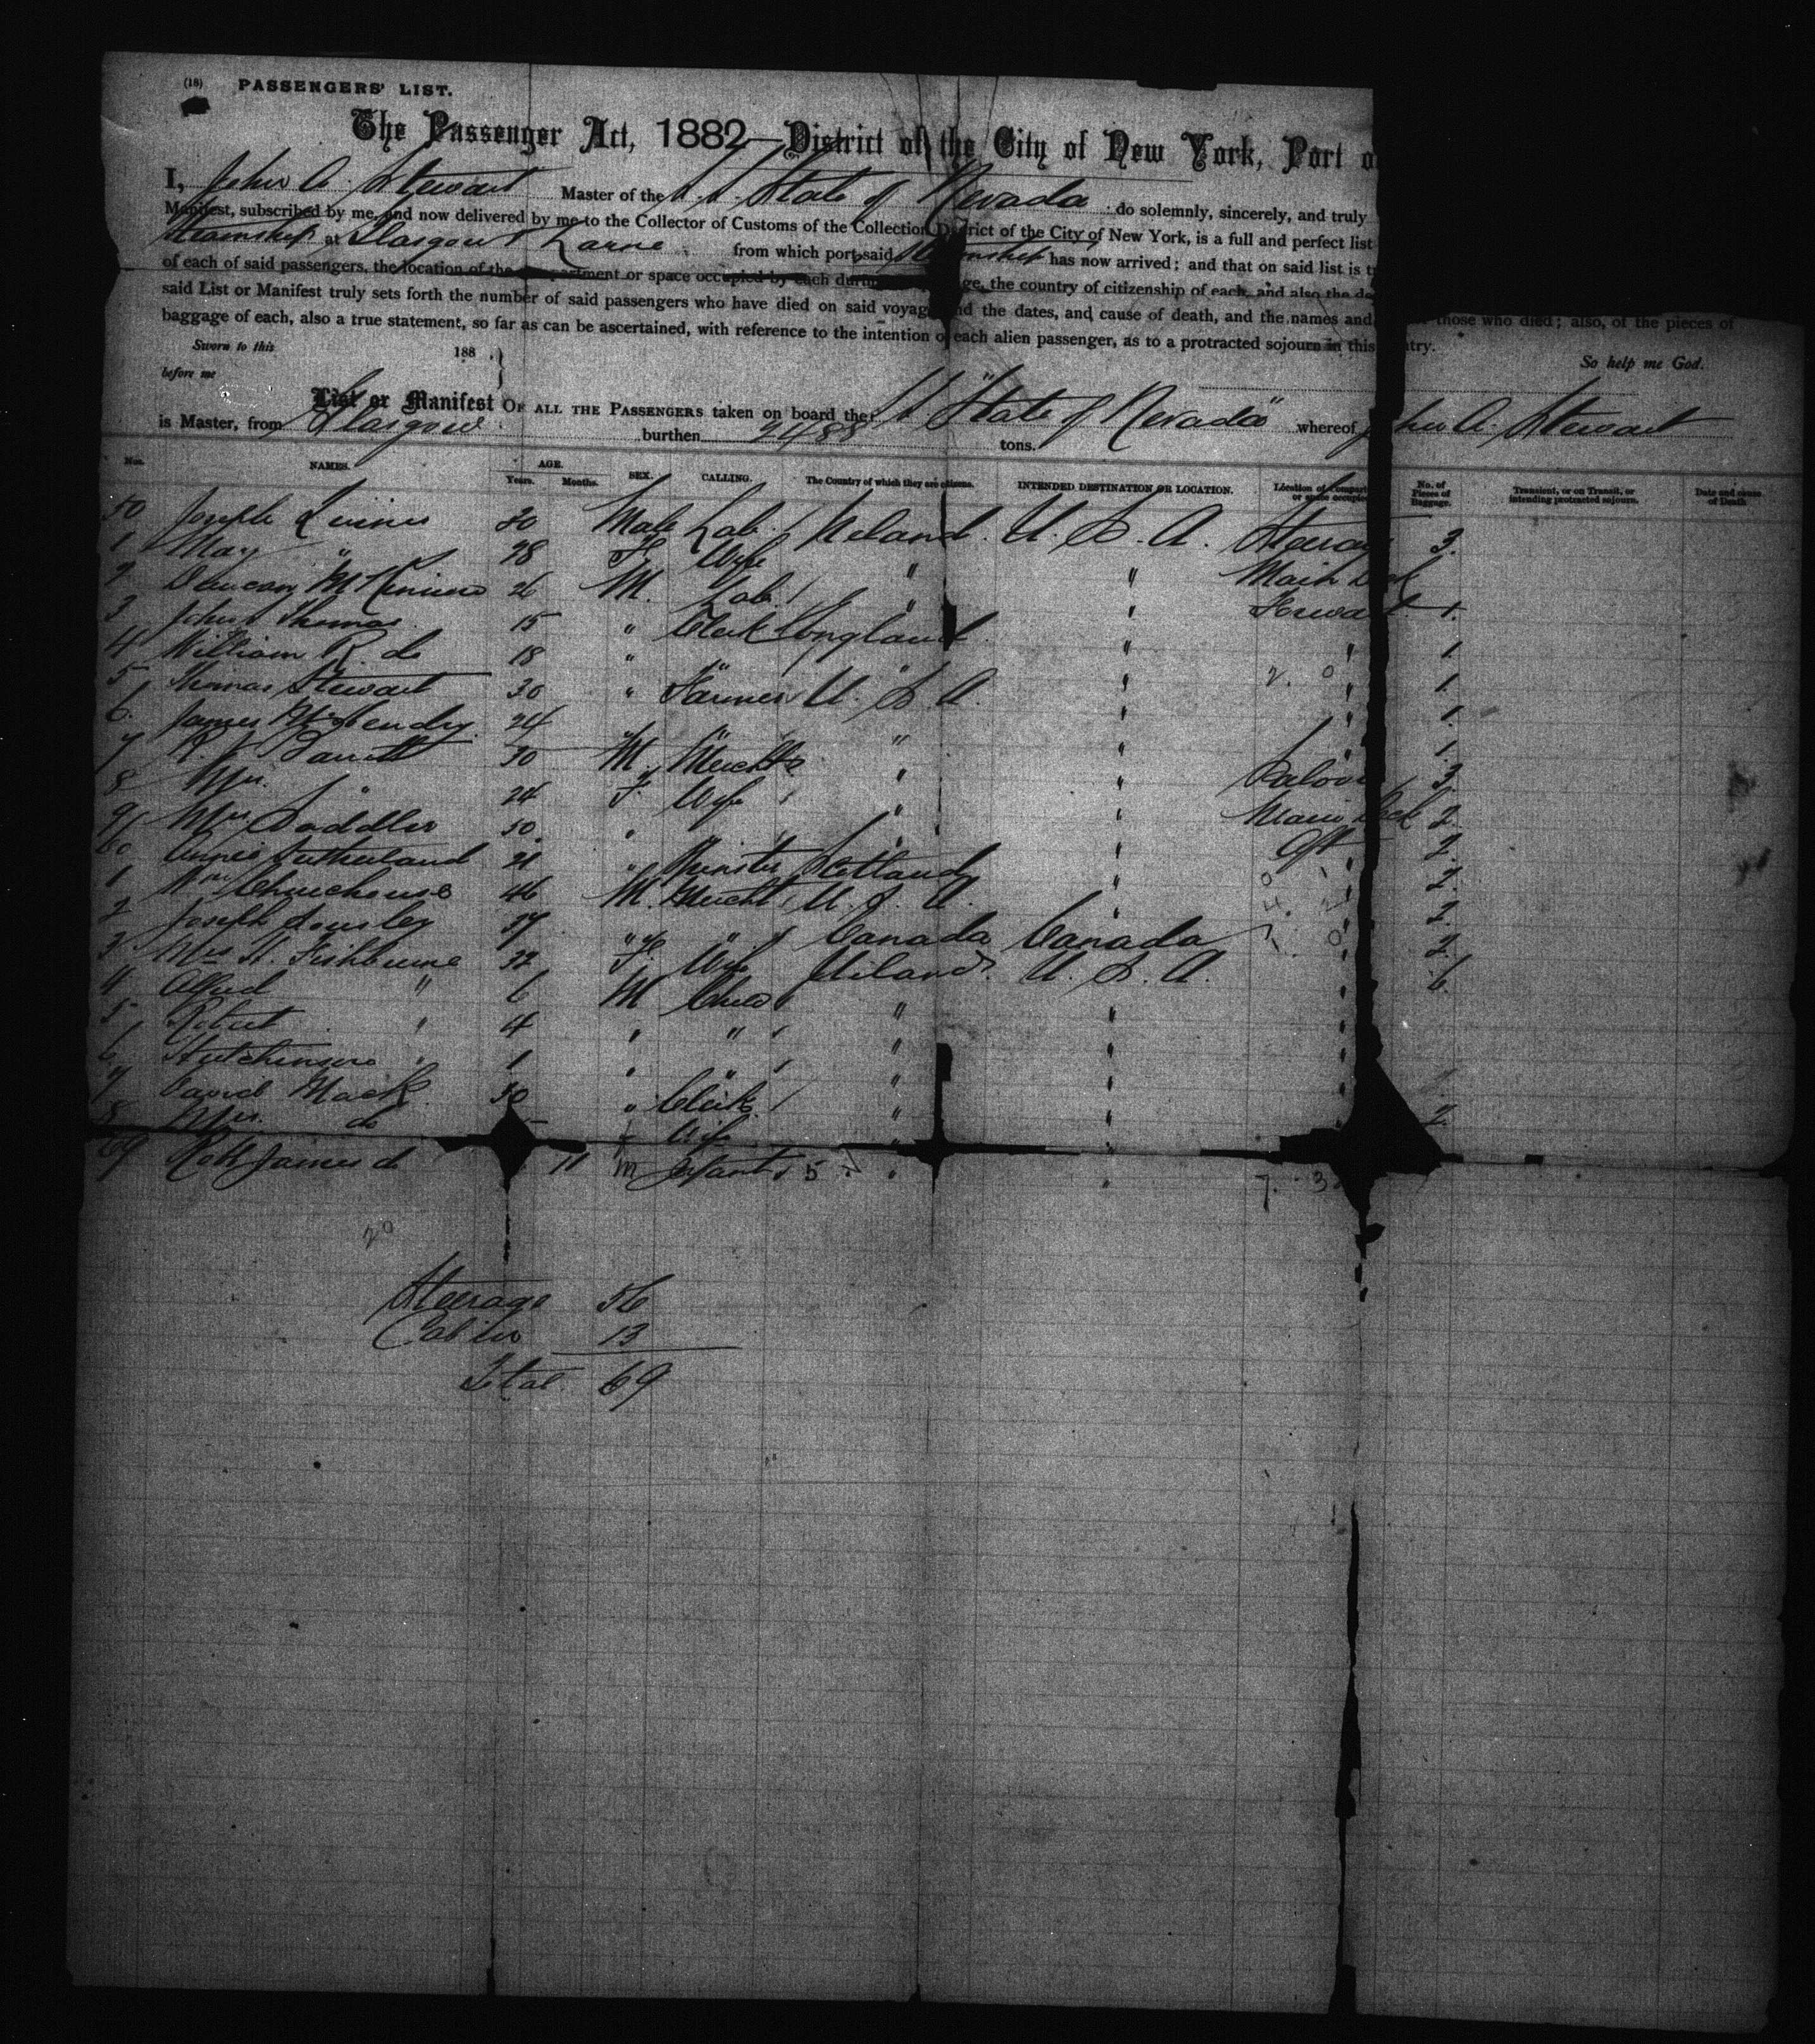 (18) PASSENGERS' LIST.
The Passenger Act, 1882—District of the City of New York, Port o
I, John A. Stewart Master of the S.S. State of Nevada do solemnly, sincerely, and truly
Manifest, subscribed by me, and now delivered by me to the Collector of Customs of the Collection District of the City of New York, is a full and perfect list
Steamship at Glasgow & Larne from which port said Steamship has now arrived; and that on said list is t
of each of said passengers, the location of the partment or space occupied by each durin ge, the country of citizenship of each, and also the de
said List or Manifest truly sets forth the number of said passengers who have died on said voyag nd the dates, and cause of death, and the names and those who died; also, of the pieces of
baggage of each, also a true statement, so far as can be ascertained, with reference to the intention of each alien passenger, as to a protracted sojourn in this ntry.
Sworn to this 188 . } So help me God.
before me
List or Manifest OF ALL THE PASSENGERS taken on board the S.S. "State of Nevada" whereof John A. Stewart
is Master, from Glasgow burthen 2488 tons.
Nos. NAMES. AGE. Years. Months. SEX. CALLING. The Country of which they are citizens. INTENDED DESTINATION OR LOCATION. Location of Compart or space occupied No. of Pieces of Baggage. Transient, or on Transit, or intending protracted sojourn. Date and cause of Death
50 Joseph 30 Male Lab. Ireland U. S. A. Steerag 3.
1 May " 28 F. Wife " " Main Deck
2 Duncan 26 M. Lab. " " Forward 1.
3 John Thomas 15 " Clerk England " " 1.
4 William R. do 18 " " " " 2. 0 " 1.
5 Thomas Stewart 30 " Farmer U. S. A. " " 1.
6. James McHendry 24 " " " " " 1.
7 Barrett 30 M. Mercht " " Saloon 3.
8 Mrs. " 24 F. Wife " " Main Deck 2
9 Mrs Saddler 50 " " " " Aft 2.
60 Annie Sutherland 21 " Spinster Scotland " " 2.
1 Wm Churchouse 46 M. Mercht U. S. A. " " 2.
2 Joseph 37 " " Canada Canada 2.
3 Mrs H. Fishburne 32 F. Wife Ireland U. S. A. " 6.
4 Alfred " 6 M Child " " "
5 Robert " 4 " " " " "
6 Hutchinson " 1 " " " " "
7 David Mack 30 " Clerk " " " 2.
8 Mrs. do F Wife " "
69 Robt James do 11 M Infant 5 " 7. 3
20
Steerage 56
Cabin 13
Total 69